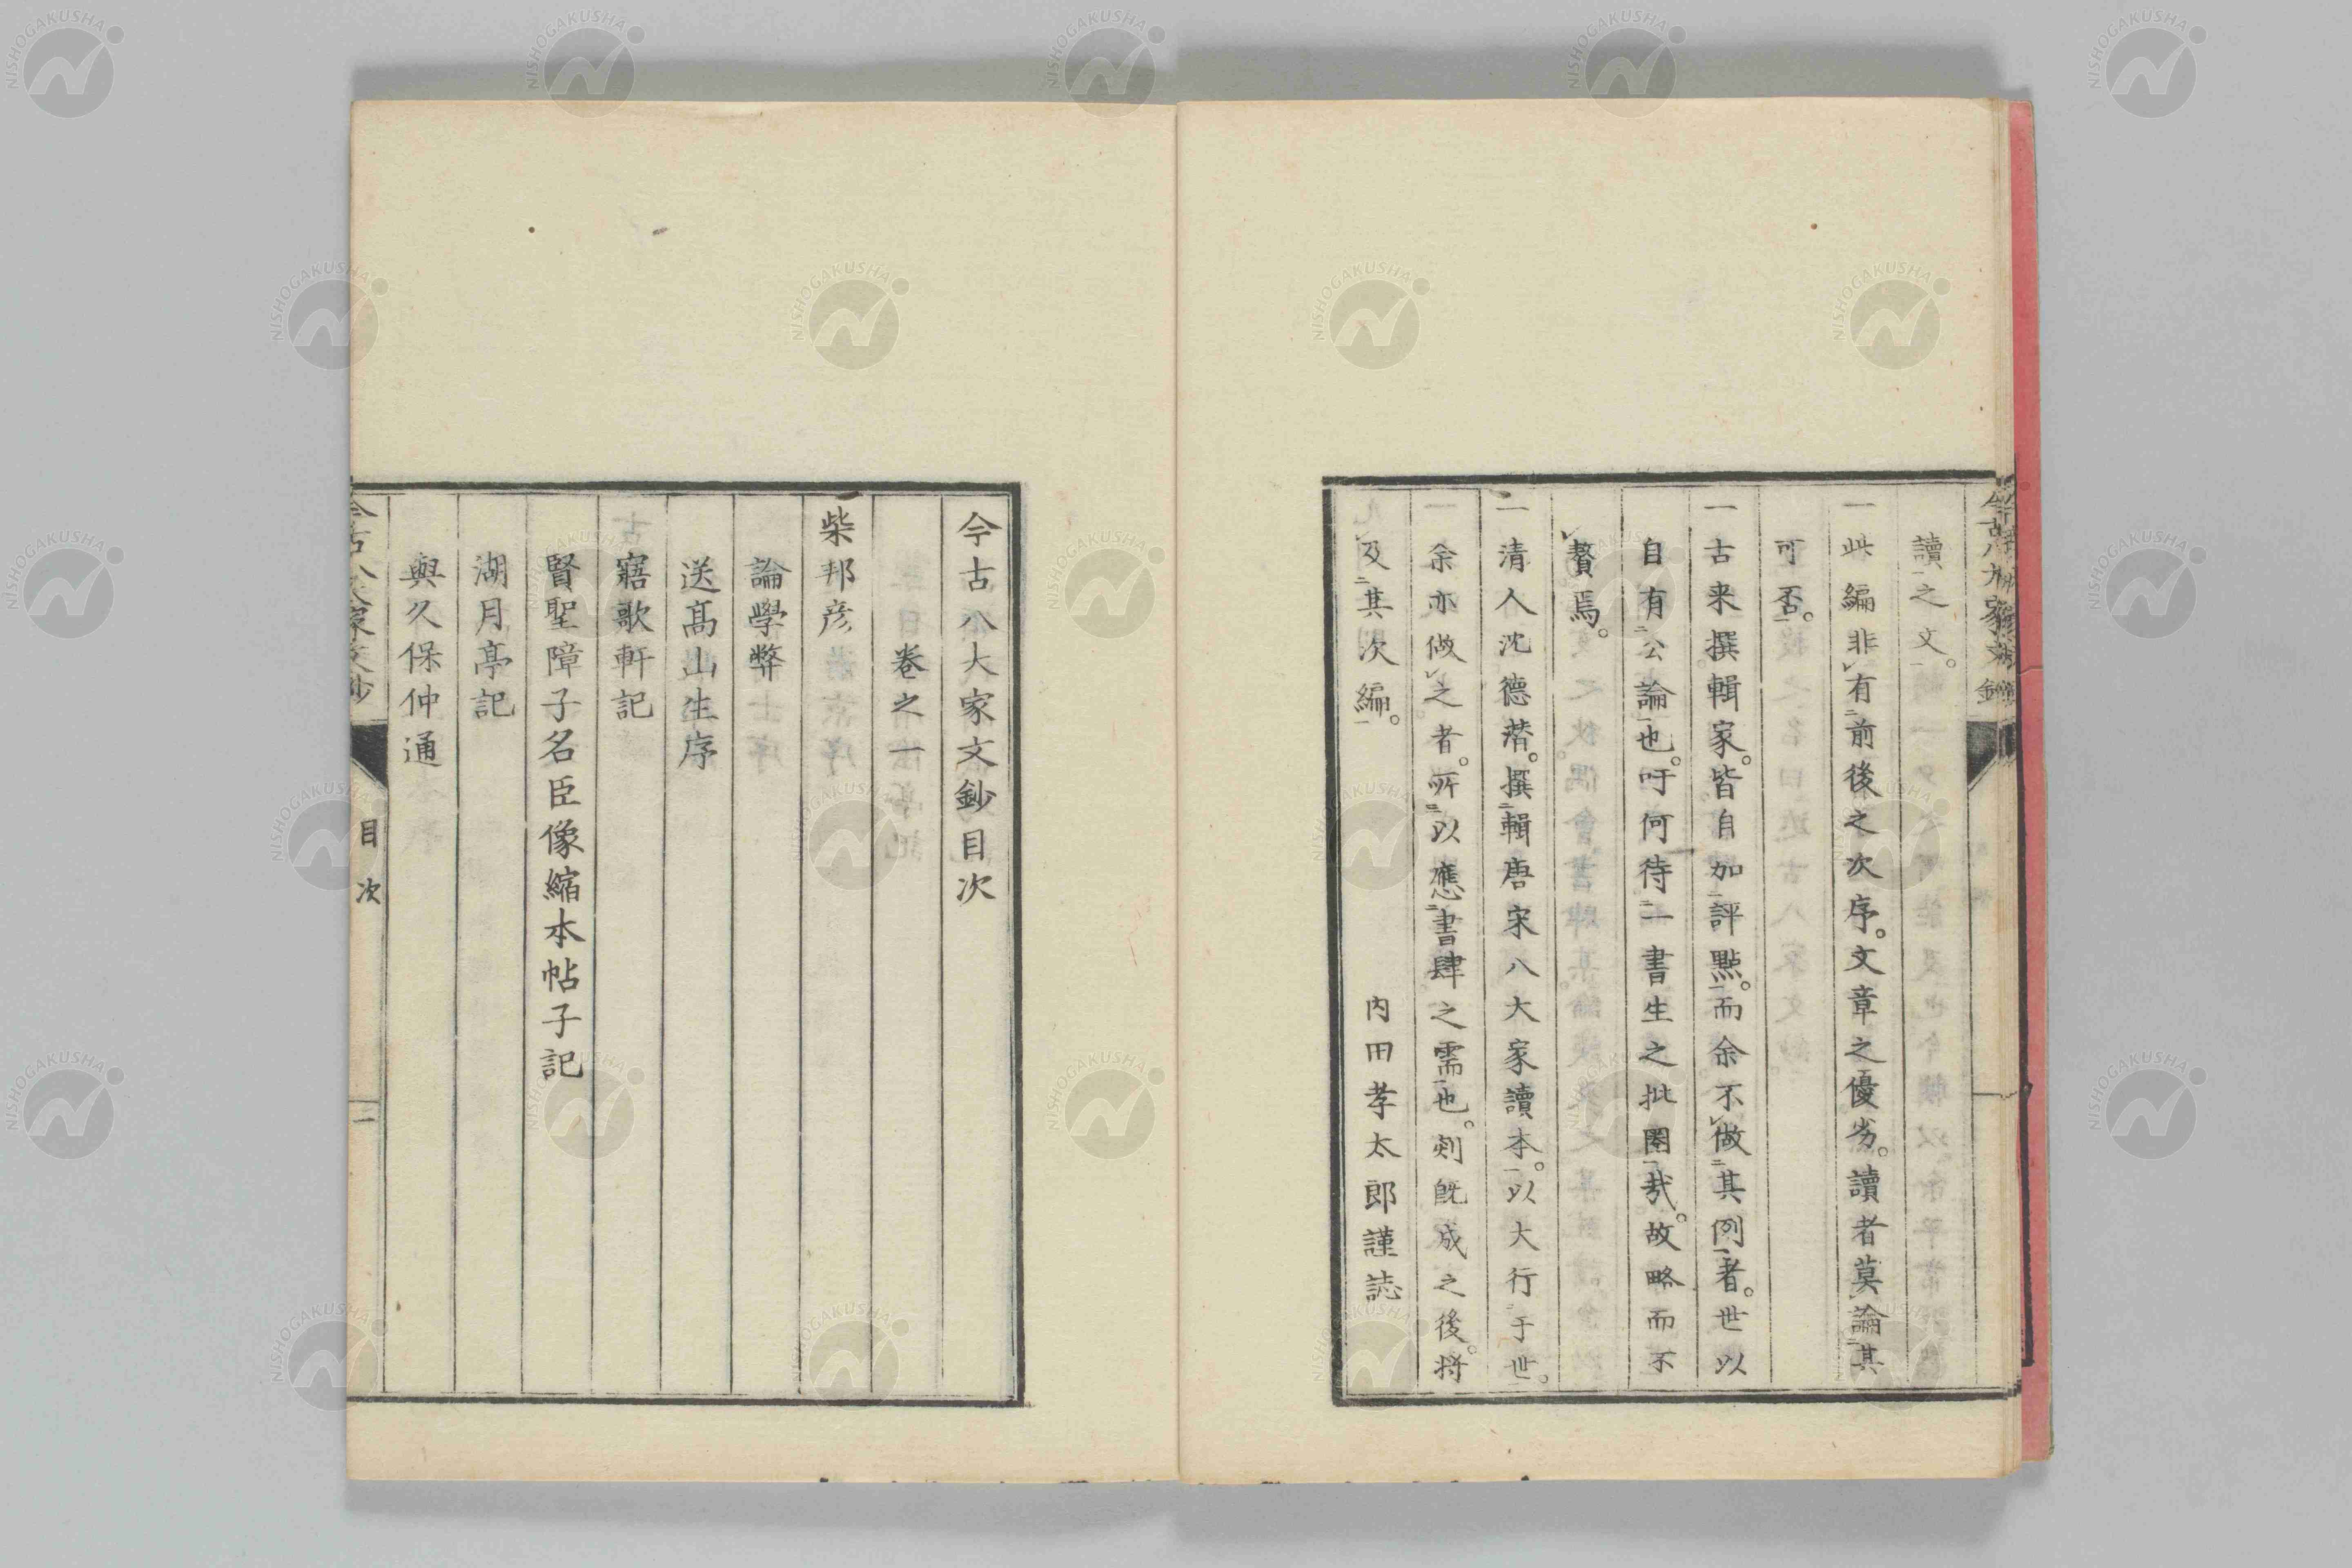 讀之文。
一此編非有前後之次序。文章之優劣。讀者莫論其
可否。
一古来撰輯家。皆自加評點。而余不倣其例者。世以
自有公論也。吁何待一書生之批圏哉。故略而不
贅焉。
一清人沈德潛。撰輯唐宋八大家讀本。以大行于世。
余亦倣之者。所以應書肆之需也。剞既成之後。將
及其次編。
内田孝太郎謹誌
今古八大家文鈔目次
卷之一
柴邦彦
論學弊
送髙山生序
寤歌軒記
賢聖障子名臣像縮本帖子記
湖月亭記
與久保仲通
今古八大家文鈔
目次
一
NISHOGAKUSHA